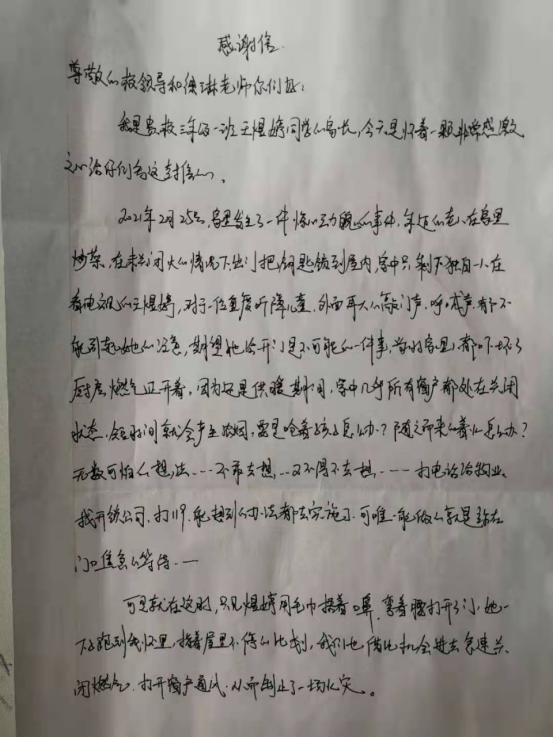 感谢信
尊敬的校领导和徐琳老师你们好：
我是贵校三年级一班王煜婷同学的家长，今天是怀着一颗非常感激
之心给你们写这封信的。
2021年2月25日，家里发生了一件惊心动魄的事件，年迈的老人在家里
炒菜，在未关闭火的情况下出门把钥匙锁到屋内，家中只剩下独自一人在
看电视的王煜婷，对于一位重度听障儿童，外面再大的敲门声、呼喊声，都不
能引起她的注意，期望她给开门是不可能的一件事，当时家里人都吓坏了
厨房燃气正开着，因为还是供暖期间，家中几乎所有窗户都处在关闭
状态，短时间就会产生浓烟，要是呛着孩子怎么办？随之而来的着火怎么办？
无数可怕的想法……不希去想，又不得不去想……打电话给物业、
找开锁公司、打119，能想到的办法都去实施了，可唯一能做的就是站在
门口焦急的等待……
可是就在这时，只见煜婷用毛巾捂着口鼻，弯着腰打开了门，她一
下子跑到我怀里，指着屋里不停的比划，我们也借此机会进去急速关
闭燃气，打开窗户通风，从而制止了一场火灾。